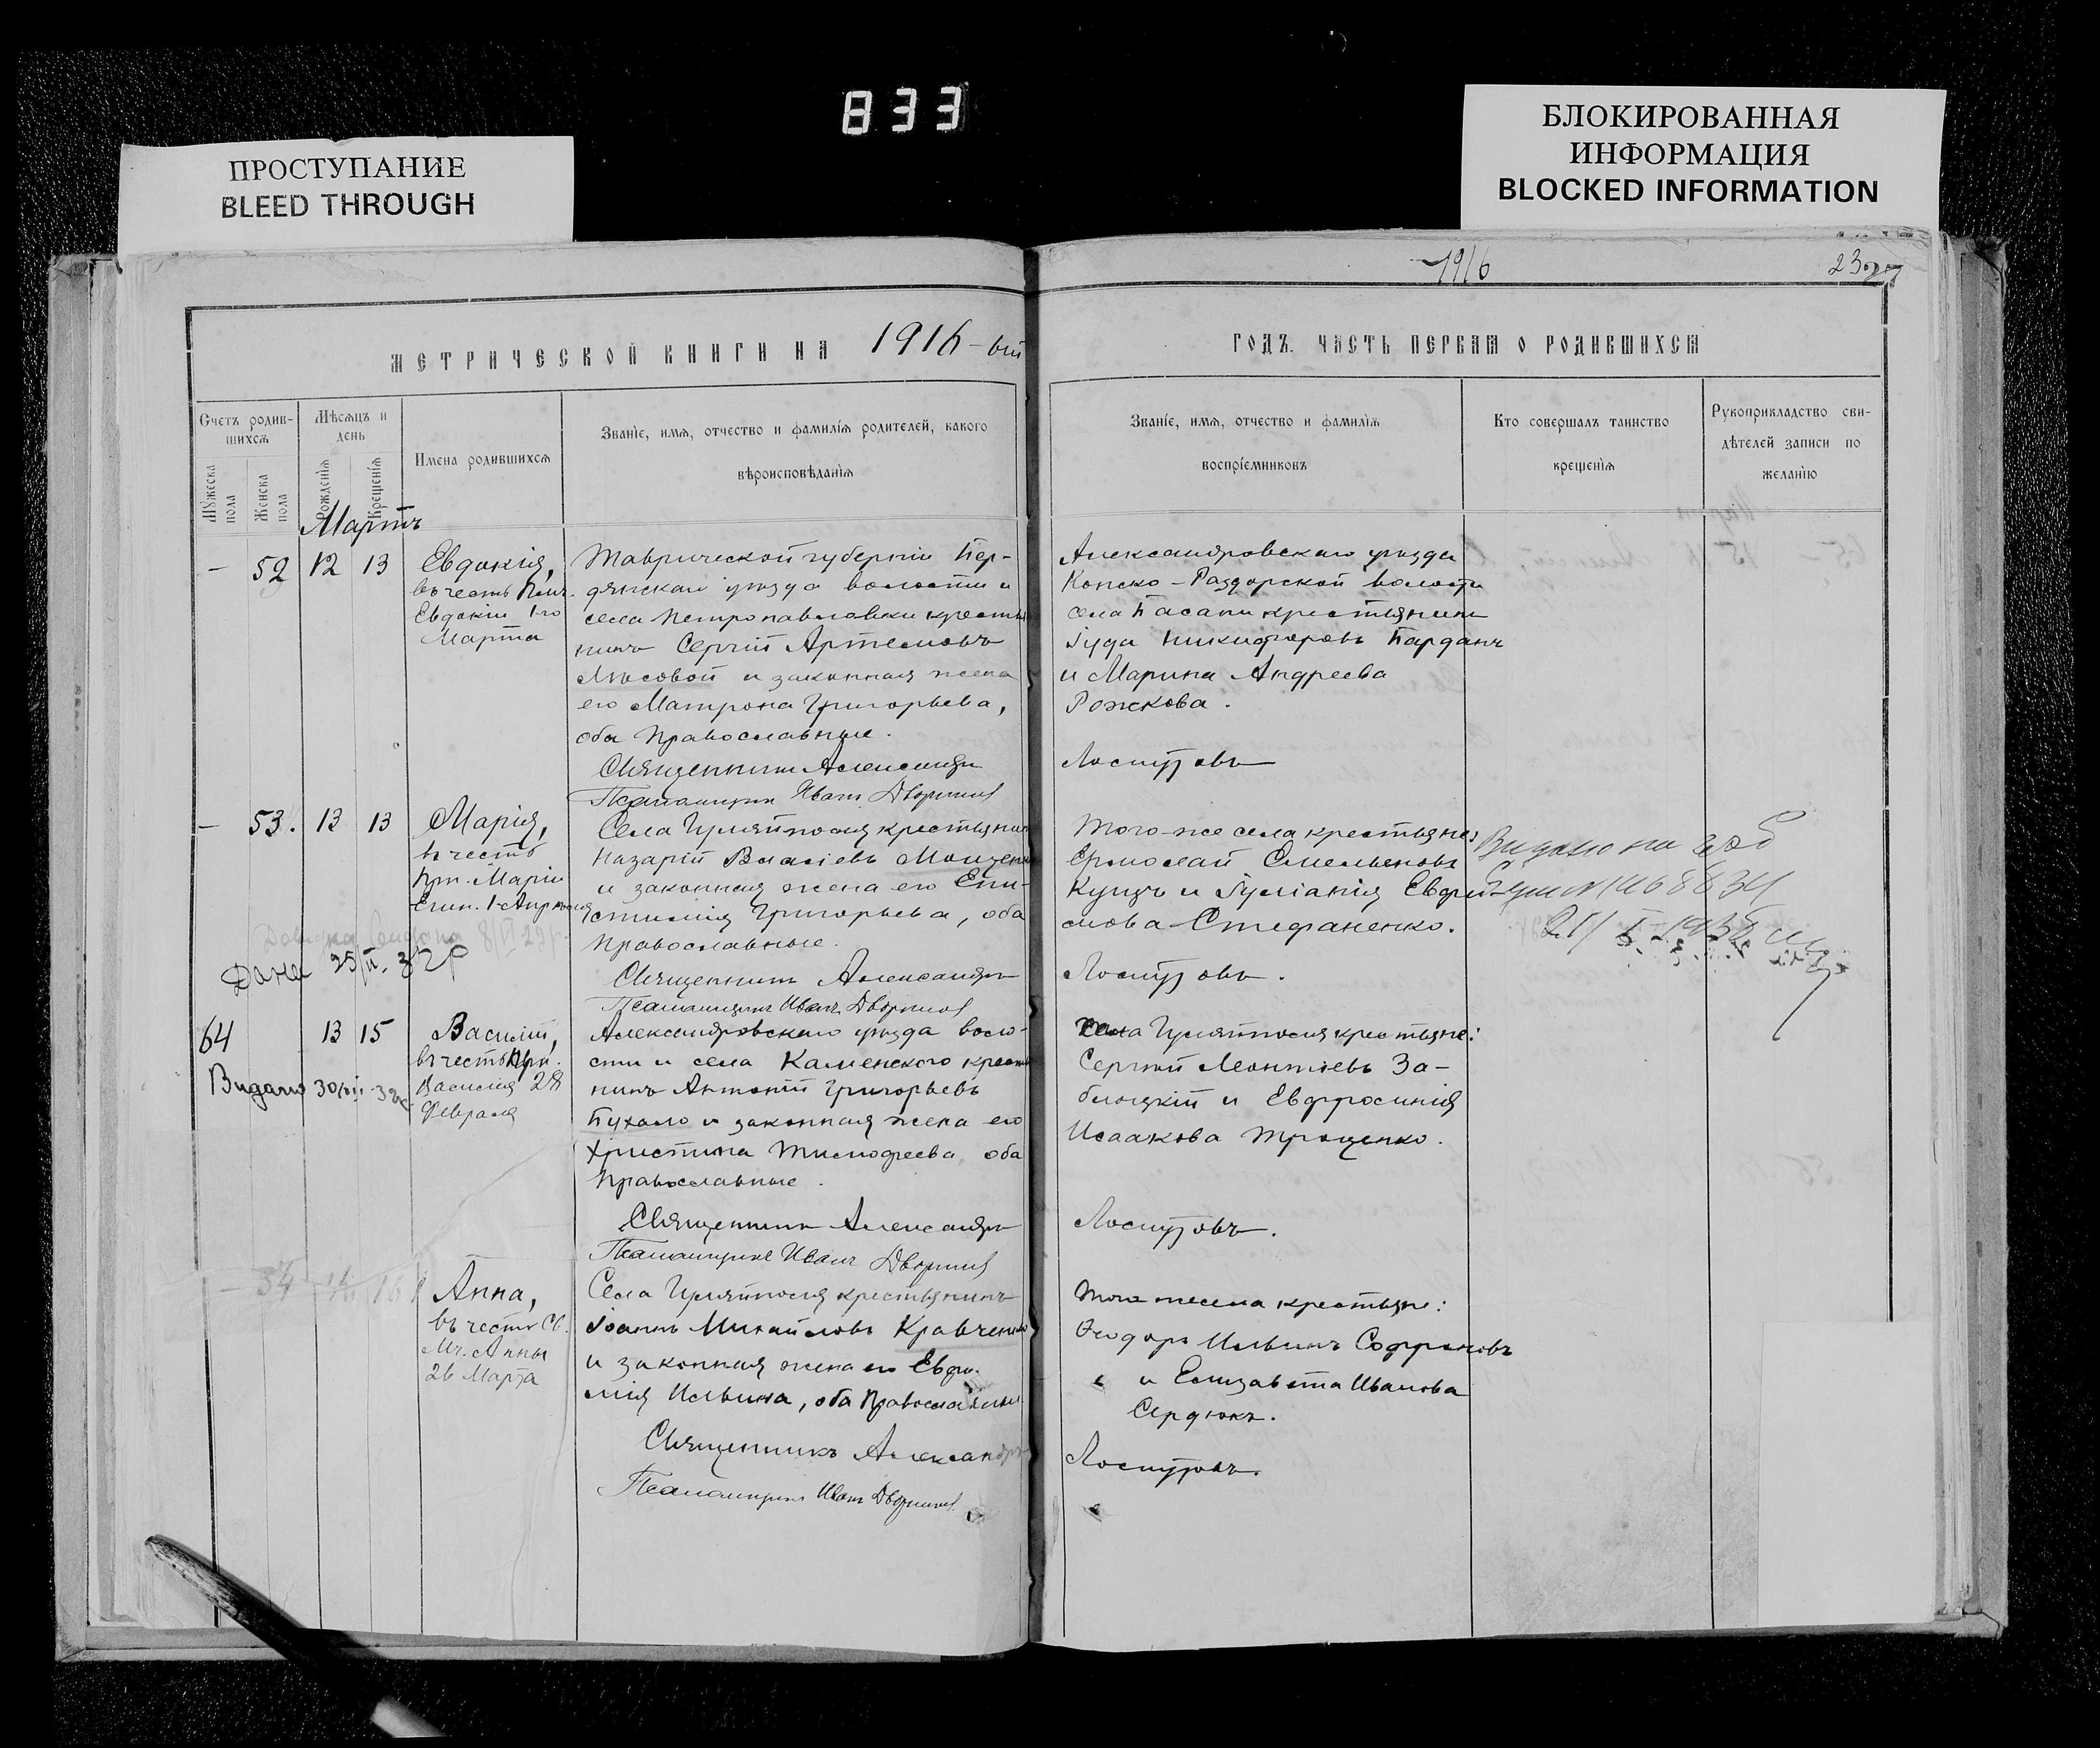 833
ПРОСТУПАНИЕ
BLEED THROUGH
БЛОКИРОВАННАЯ
ИНФОРМАЦИЯ
BLOCKED INFORMATION
1916
МЕТРИЧЕСКОЙ КНИГИ НА 1916-ый
ГОДЪ. ЧАСТЬ ПЕРВАЯ О РОДИВШИХСЯ
Счетъ родив-
шихся
Мужеска пола
Женска пола
Мѣсяцъ и
день
Рожденія
Крещенія
Имена родившихся
Званіе, имя, отчество и фамилія родителей, какого
вѣроисповѣданія
Званіе, имя, отчество и фамилія
воспріемниковъ
Кто совершалъ таинство
крещенія
Рукоприкладство сви-
дѣтелей записи по
желанію
Мартъ
- 52 12 13
Евдокія,
въ честь
Евдокіи 1-го
Марта
Таврической губерніи Бер-
дянскаго уѣзда волости и
села Петропавловки крестья
нинъ Сергій Артемовъ
Лѣсовой и законная жена
его Матрона Григорьева,
оба православные.
Священникъ Александръ
Псаломщикъ Иванъ
Александровскаго уѣзда
Конско-Раздорской волости
села Басани крестьянинъ
Іуда Никифоровъ Барданъ
и Марина Андреева
Рожкова.
- 53. 13 13
Марія,
въ честь
прп. Маріи
Егип. 1 Апрѣля
Дана 25/II. 32р
Села Гуляйполя крестьянинъ
Назарій Власіевъ
и законная жена его Епи-
стимія Григорьева, оба
православные.
Священникъ Александръ
Псаломщикъ Иванъ
Того-же села крестьяне:
Ермолай Емельяновъ
Куцъ и Іуліанія Евфи-
мова Стефаненко.
Видано на
64 13 15
Видано
Василій,
въ честь прп.
Василія 28
Февраля
Александровскаго уѣзда воло-
сти и села Каменского крестья
нинъ Антоній Григорьевъ
Бухало и законная жена его
Христина Тимофеева, оба
православные.
Священникъ Александръ
Псаломщикъ Иванъ
Села Гуляйполя крестьяне:
Сергій Леонтіевъ За-
блоцкій и Евфросинія
Исаакова Троценко.
- 54 14 16
Анна,
въ честь Св.
Мч. Анны
26 Марта
Села Гуляйполя крестьянинъ
Іоаннъ Михайловъ Кравченко
и законная жена его Евфи-
мія Ильина, оба православные
Священникъ Александръ
Псаломщикъ Иванъ
Того же села крестьяне:
Ѳеодоръ Ильинъ Софроновъ
и Елизавета Иванова
Сердюкъ.